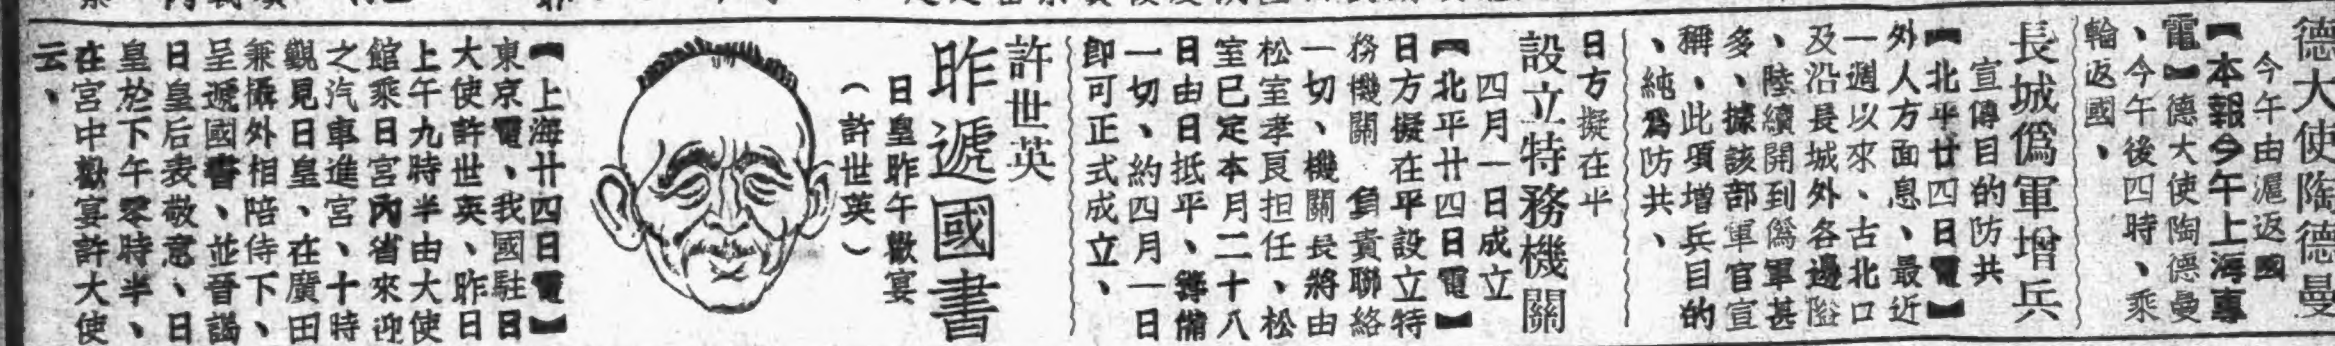 德大使陶德曼
今午由滬返國
【本報今午上海專
電】德大使陶德曼
、今午後四時、乘
輪返國、
長城偽軍增兵
宣傳目的防共
【北平廿四日電】
外人方面息、最近
一週以來、古北口
及沿長城外各邊隘
、陸續開到偽軍甚
多、據該部軍官宣
稱、此項增兵目的
、純爲防共、
日方擬在平
設立特務機關
四月一日成立
【北平廿四日電】
日方擬在平設立特
務機關　負責聯絡
一切、機關長將由
松室孝良担任、松
室已定本月二十八
日由日抵平、籌備
一切、約四月一日
即可正式成立、
許世英
昨遞國書
日皇昨午歡宴
（許世英）
【上海廿四日電】
東京電、我國駐日
大使許世英、昨日
上午九時半由大使
館乘日宮內省來迎
之汽車進宮、十時
觀見日皇、在廣田
兼攝外相陪侍下、
呈遞國書、並晉謁
日皇后表敬意、日
皇於下午零時半、
在宮中歡宴許大使
云、